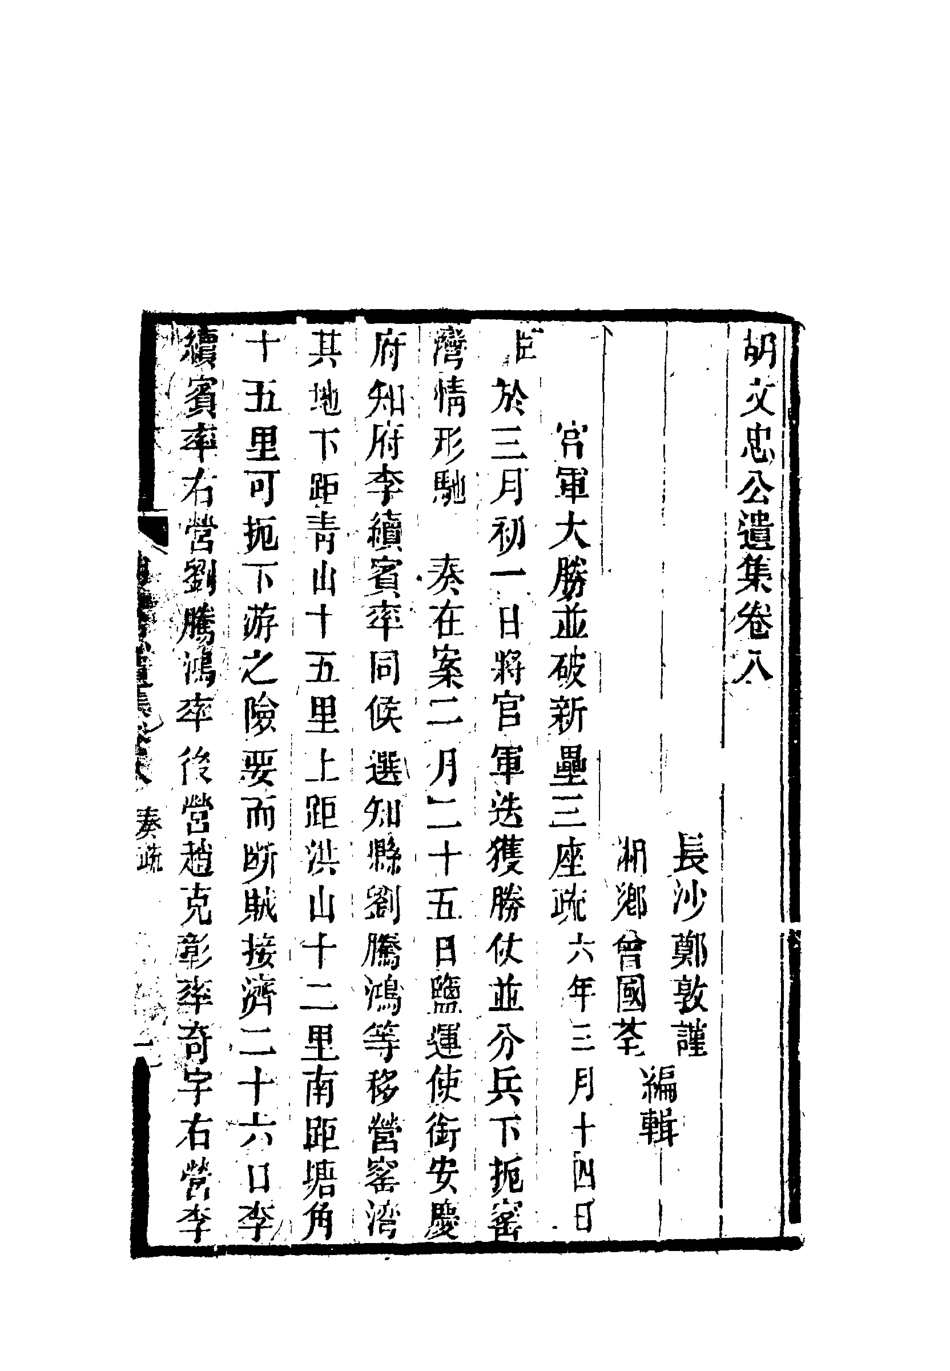 胡文忠公遺集卷八
長沙鄭敦謹
湘鄉曾國荃
編輯
官軍大勝並破新壘三座疏六年三月十四日
於三月初一日將官軍迭獲勝仗並分兵下扼窰
灣情形馳　奏在案二月二十五日鹽運使銜安慶
府知府李續賓率同候選知縣劉騰鴻等移營窰湾
其地下距青山十五里上距洪山十二里南距塘角
十五里可扼下游之險要而断賊接濟二十六日李
續賓率右營劉騰鴻率後營趙克彰率奇字右營李
奏疏